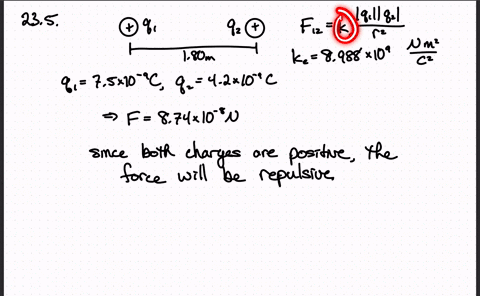 23.5.
+ q₁ q₂ +
1.80m
F₁₂ = k |q₁||q₂| / r²
kₑ = 8.988 × 10⁹ Nm²/C²
q₁ = 7.5×10⁻⁹C, q₂ = 4.2×10⁻⁹C
⇒ F = 8.74×10⁻⁸N
since both charges are positive, the
force will be repulsive.